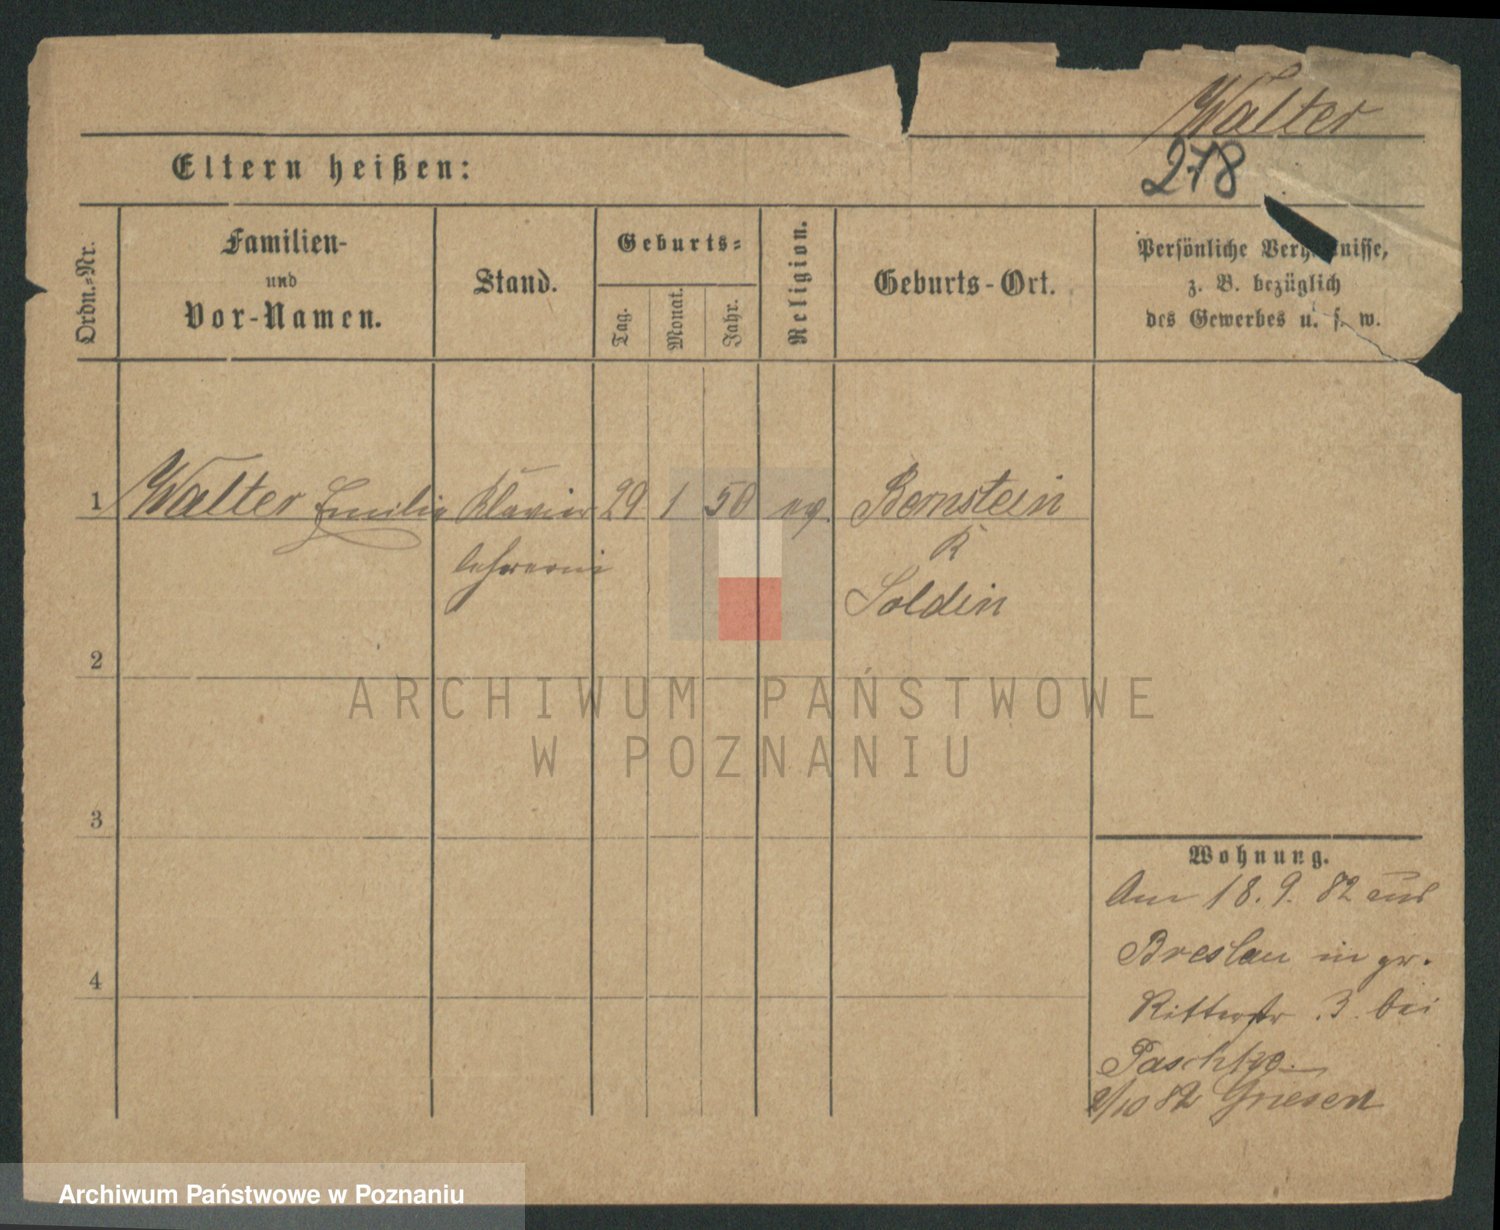 Walter
278
Eltern heißen:
Ordn.-Nr.
Familien-
und
Vor-Namen.
Stand.
Geburts-
Tag.
Monat.
Jahr.
Religion.
Geburts-Ort.
Persönliche Verh nisse,
z. B. bezüglich
des Gewerbes u. s. w.
1 Walter Emilie Klavier 29 1 50 ev. Bernstein
lehrerin K
Soldin
2
ARCHIWUM PAŃSTWOWE
W POZNANIU
3
4
Wohnung.
Am 18. 9. 82 aus
Breslau in gr.
Ritterstr. 3. bei
Paschke
2/10 82 Gnesen
Archiwum Państwowe w Poznaniu